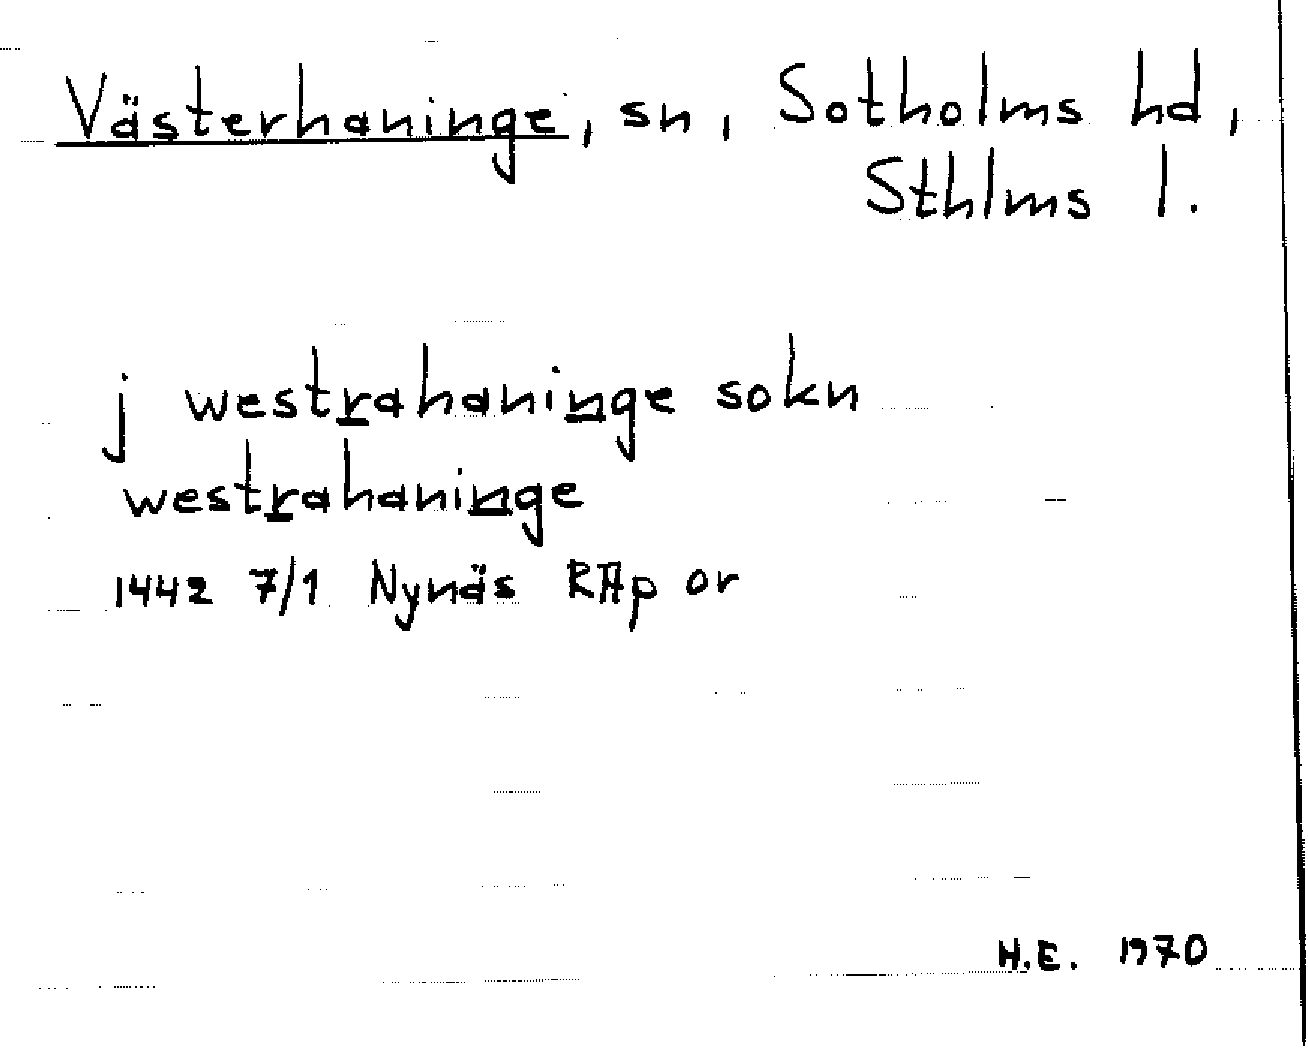 Västerhaninge, sn, Sotholms hd,
Sthlms l.
j westrahaninge sokn
westrahaninge
1442 7/1 Nynäs RAp or
H.E. 1970